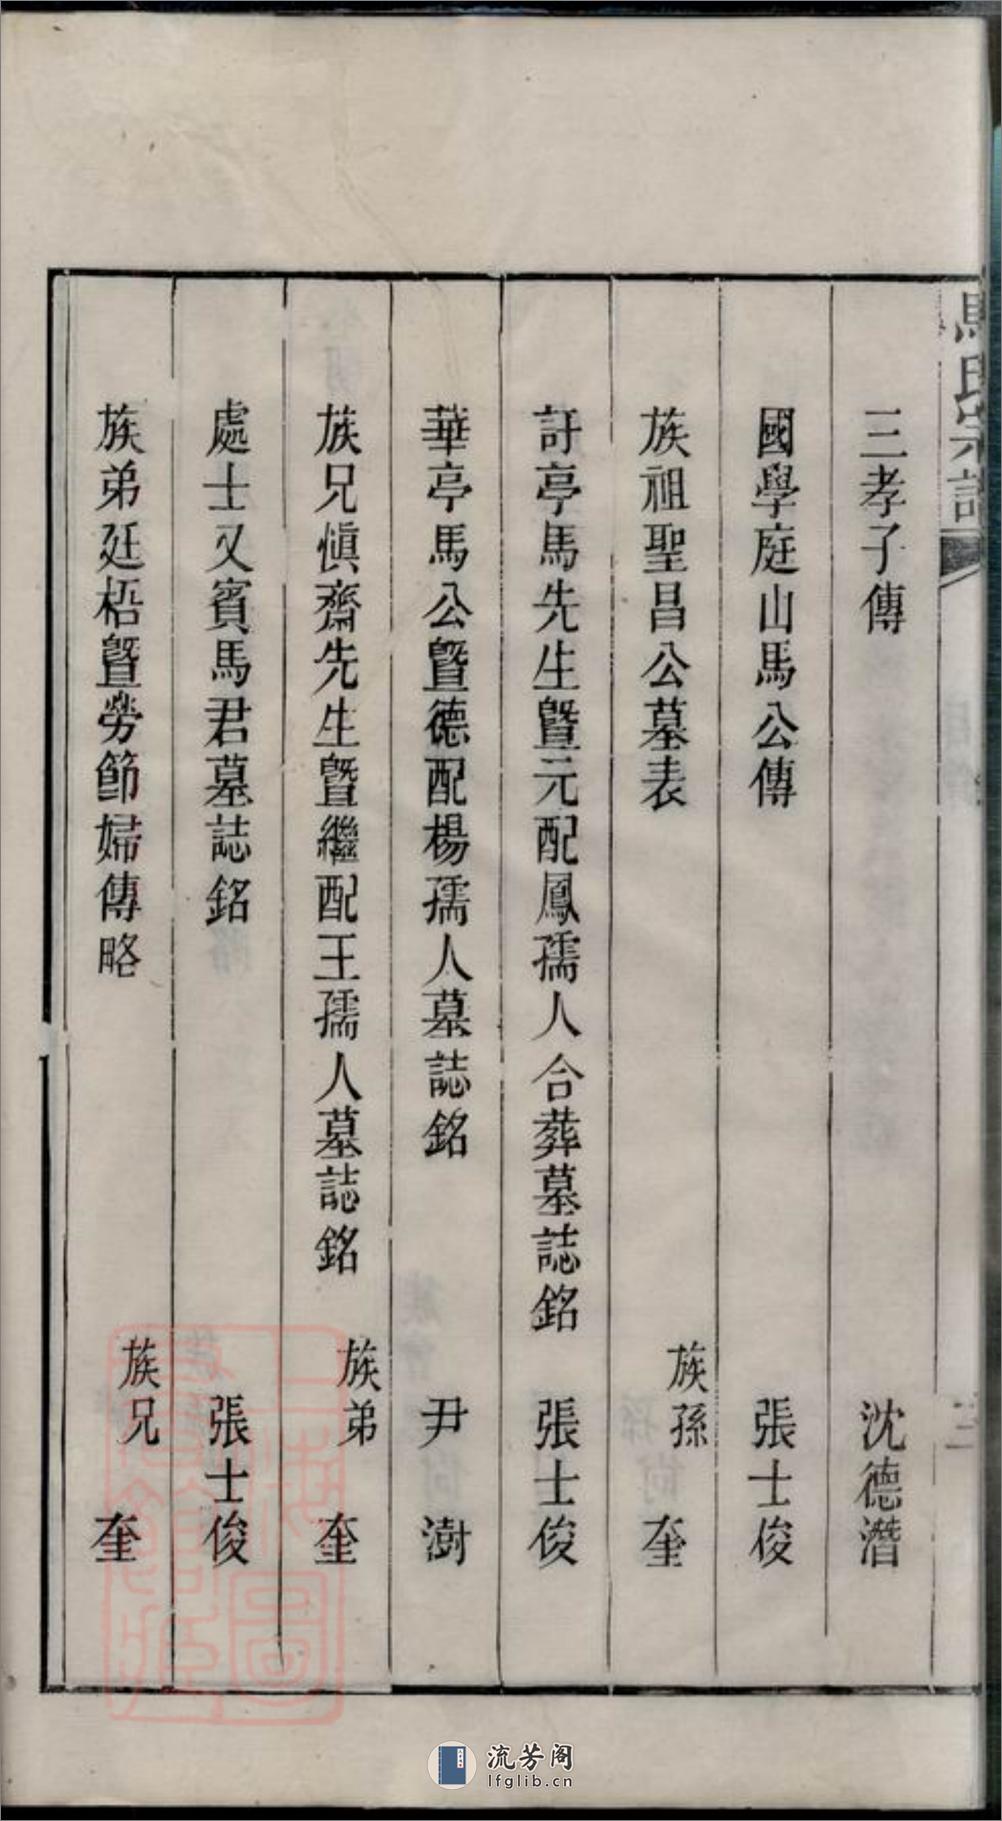 馬氏宗譜
三
三孝子傳 沈德潛
國學庭山馬公傳 張士俊
族祖聖昌公墓表 族孫 奎
訏亭馬先生暨元配鳳孺人合葬墓誌銘 張士俊
華亭馬公暨德配楊孺人墓誌銘 尹澍
族兄愼齋先生暨繼配王孺人墓誌銘 族弟 奎
處士又賓馬君墓誌銘 張士俊
族弟廷梧暨勞節婦傳略 族兄 奎
流芳阁
lfglib.cn